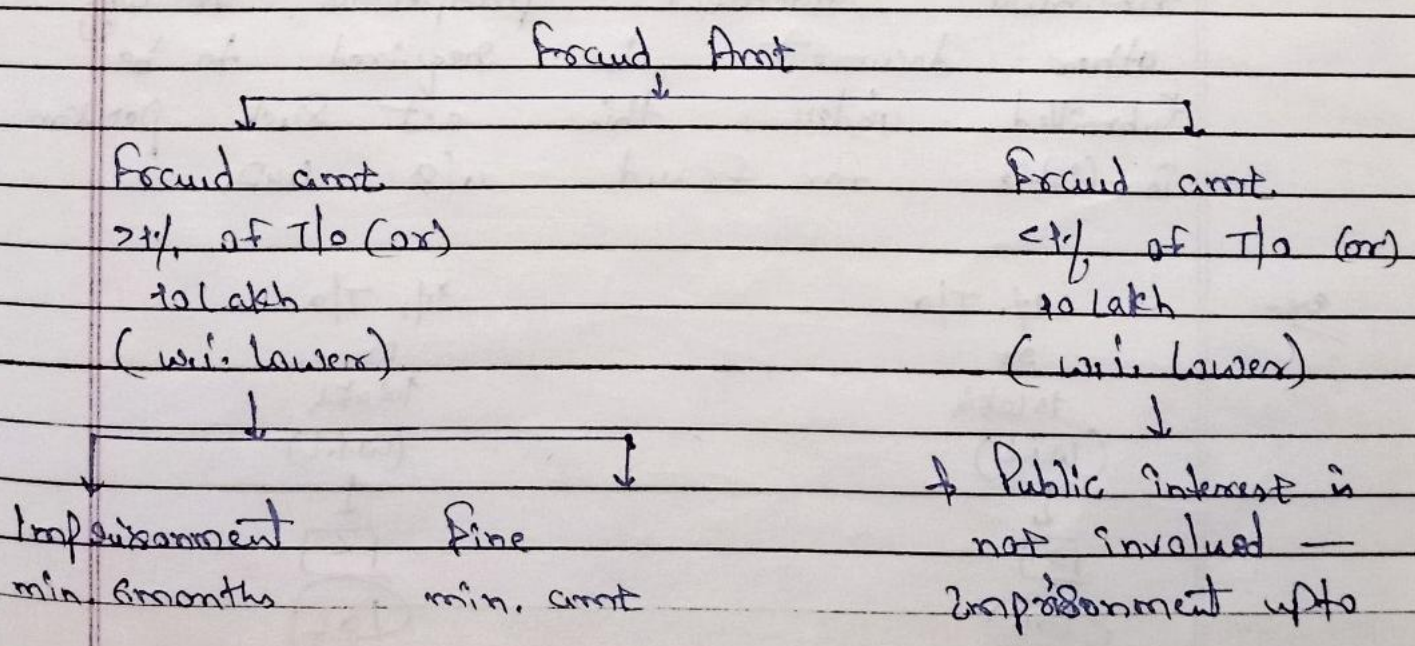 Fraud Amt
Fraud amt.
>1% of T/o (or)
10 Lakh
(w.i. lower)
Imprisonment
min 6months
Fine
min. amt
Fraud amt.
<1% of T/o (or)
10 Lakh
(w.i. lower)
* Public interest is
not involved —
Imprisonment upto